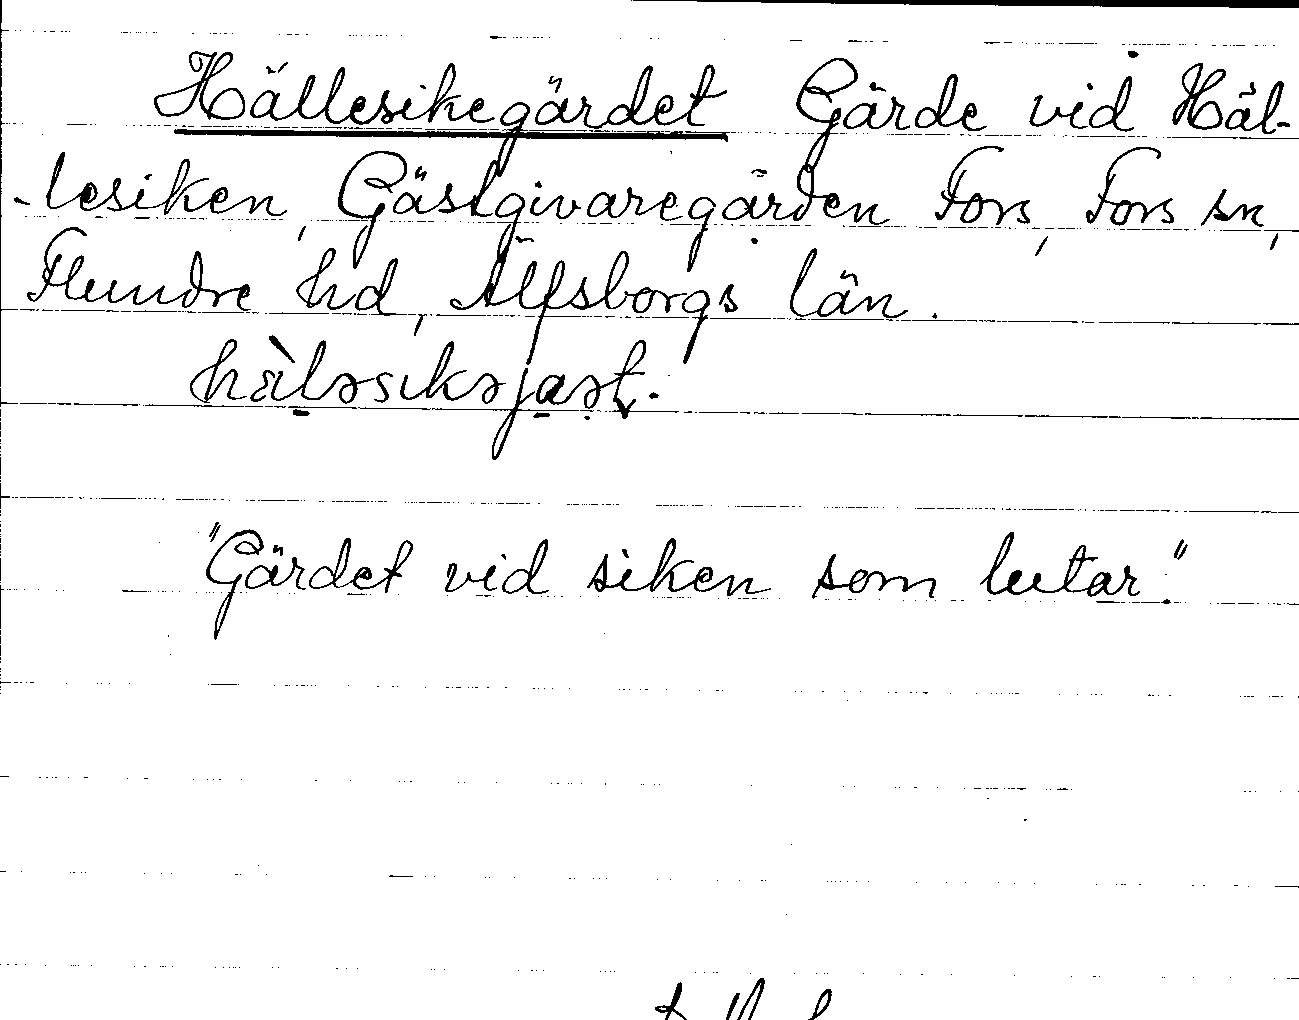 Hällesikegärdet Gärde vid Häl-
-lesiken, Gästgivaregården Fors, Fors sn,
Flundre hd, Älfsborgs län.
"Gärdet vid siken som lutar."